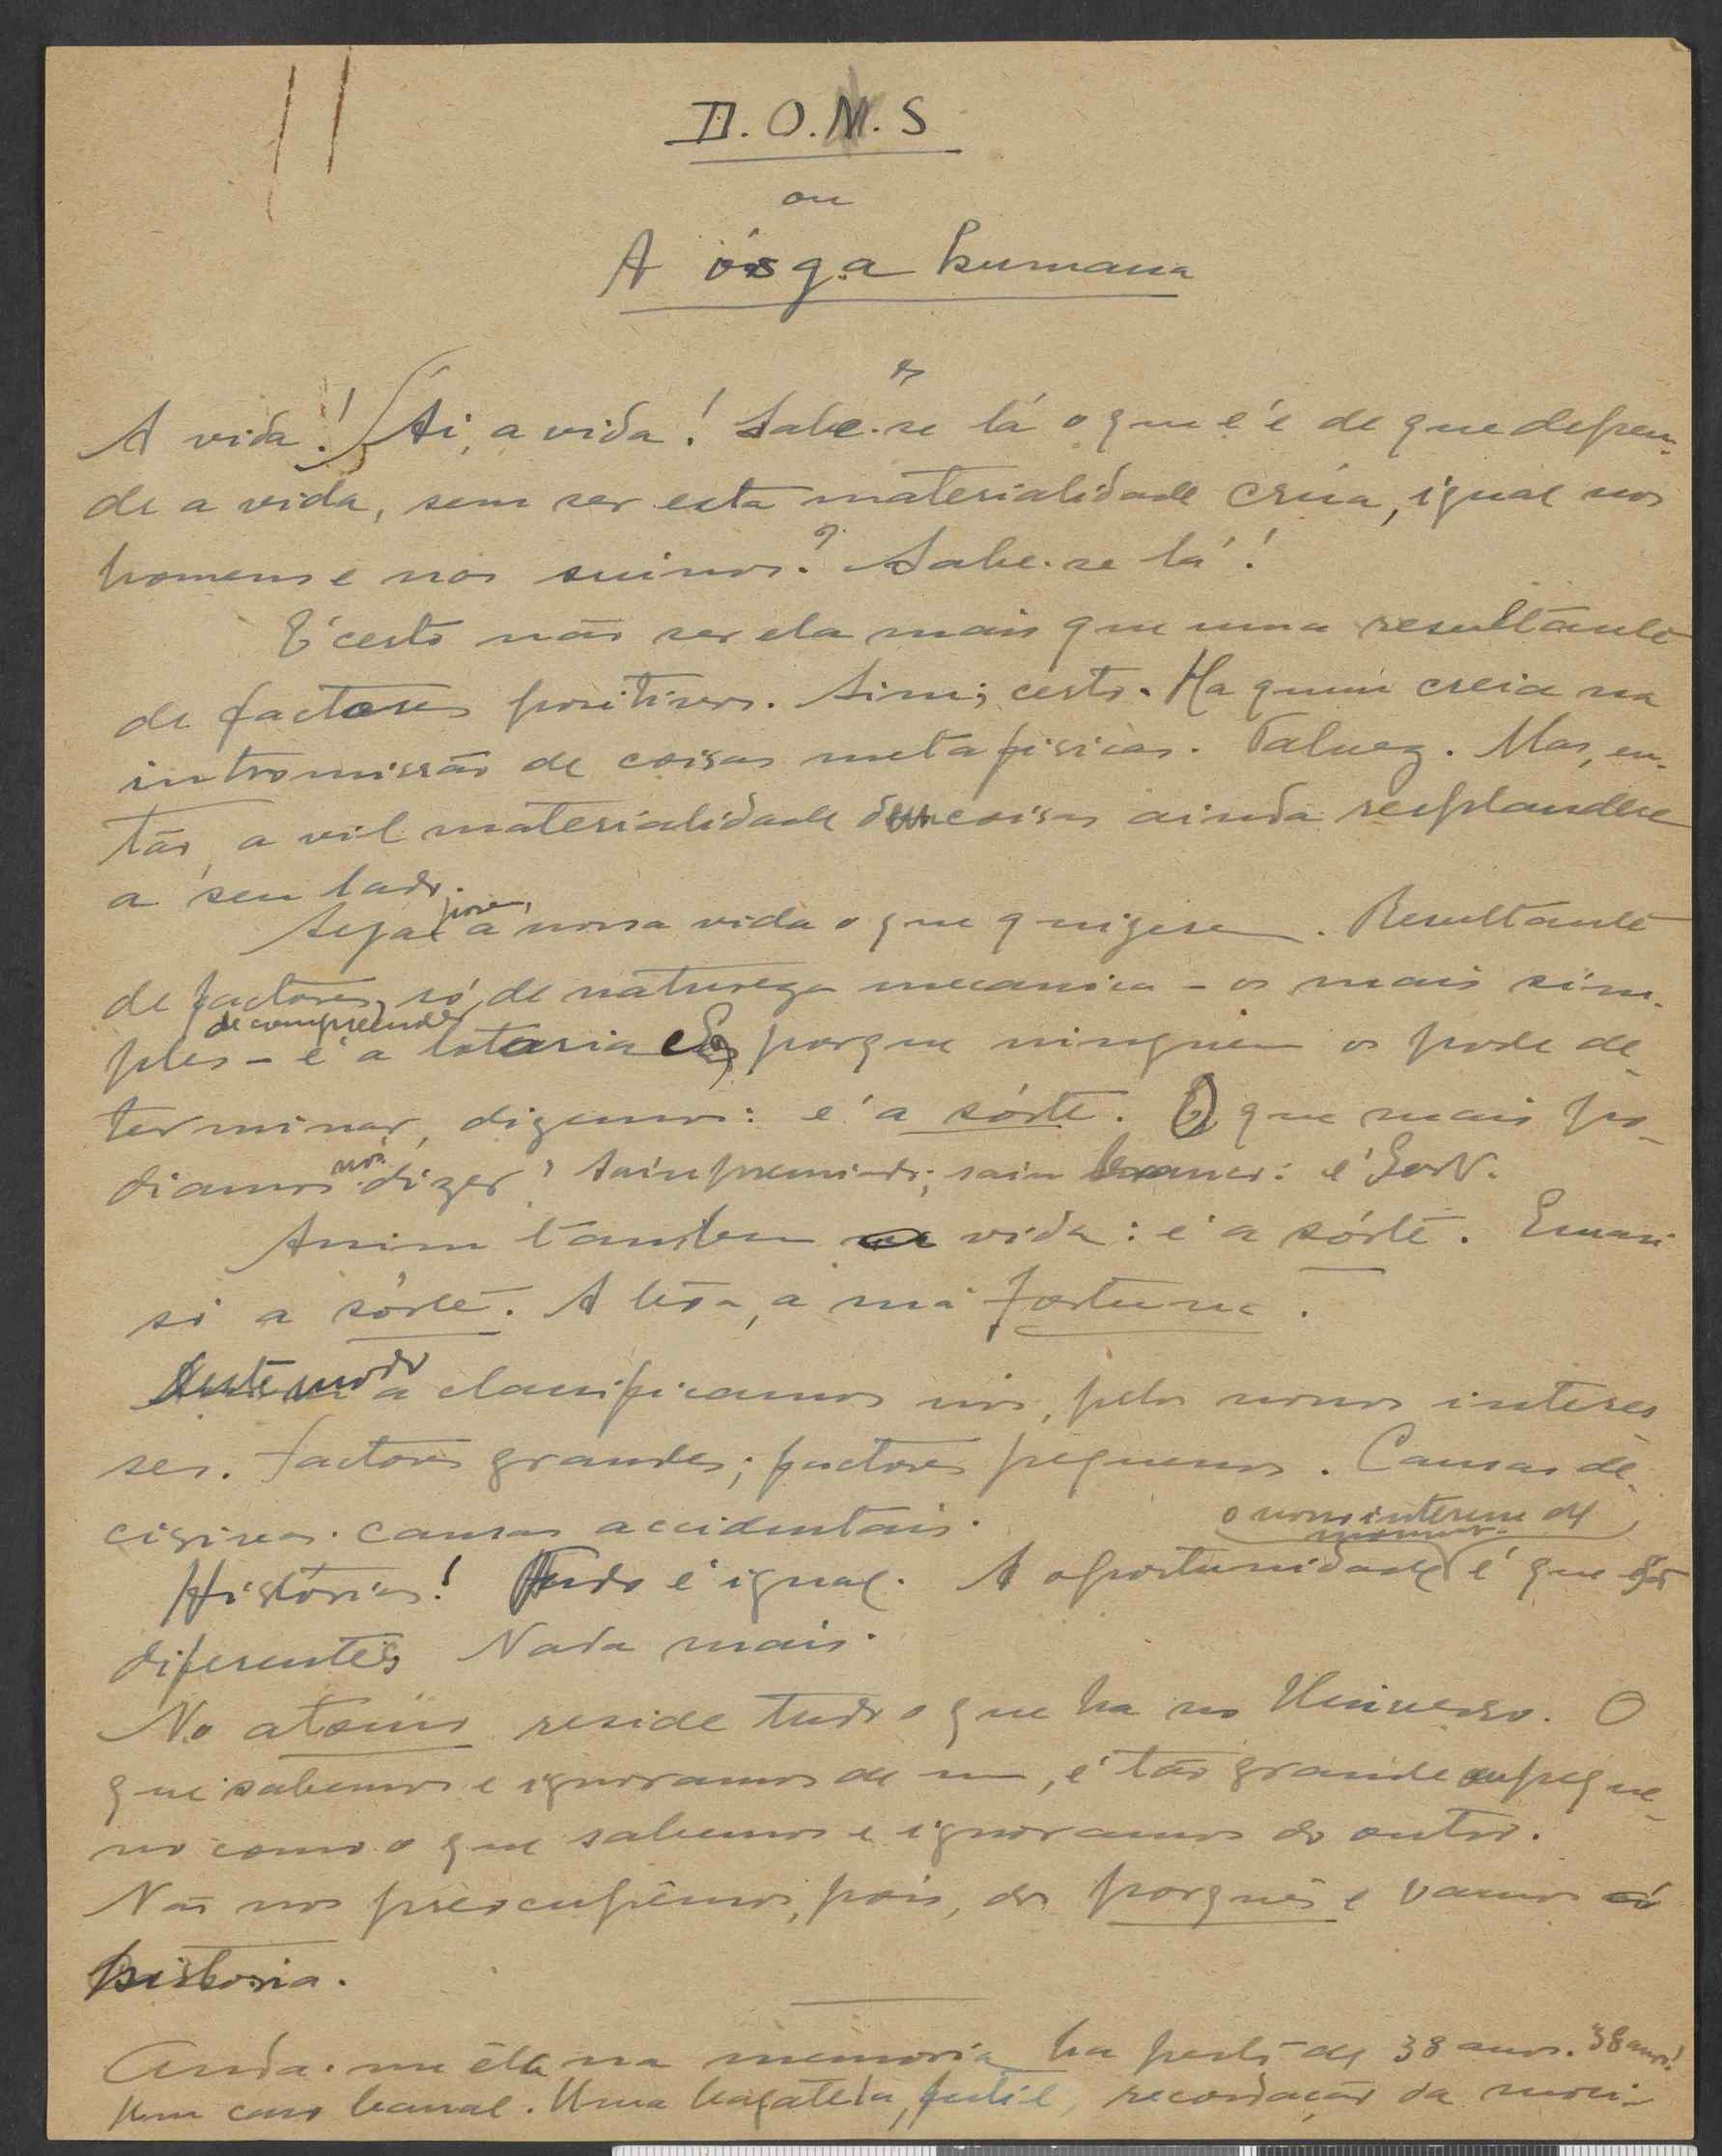 D. O. M. S
ou
A ósga humana
A vida! Ai, a vida! Sabe-se lá o que é e de que depen-
de a vida, sem ser esta materialidade crúa, igual nos
homens e nos suinos? Sabe-se lá!
É certo não ser ela mais que uma resultante
de factores positivos. Sim; certo. Ha quem creia na
intromissão de coisas metafisicas. Talvez. Mas, en-
tão, a vil materialidade das coisas ainda resplandece
a seu lado.
Seja porem, a nossa vida o que quizerem. Resultante
de factores, só de natureza mecanica - os mais sim-
ples de compreender - é a lotaria E, porque ninguem os pode de-
terminar, dizemos: é a sórte. O que mais po-
diamos nós dizer? Saiu premiado; saiu branco: é
Assim tambem a vida: é a sórte. Em si
si a sórte. A bôa, a má fortuna.
Deste modo a classificamos nós, pelos nossos interes
ses. Factores grandes; factores pequenos. Causas de-
cisivas. causas accidentais.
Histórias! Tudo é igual. A oportunidade o nosso interesse de momento é que são
diferentes Nada mais.
No atomo reside tudo o que ha no Universo. O
que sabemos e ignoramos de um, é tão grande ou peque-
no como o que sabemos e ignoramos do outro.
Não nos preocupêmos, pois, dos porquês e vamos á
historia.
Anda-me éla na memoria ha perto de 38 anos. 38 anos!
Um caso banal. Uma bagatela, futil, recordação da moci-